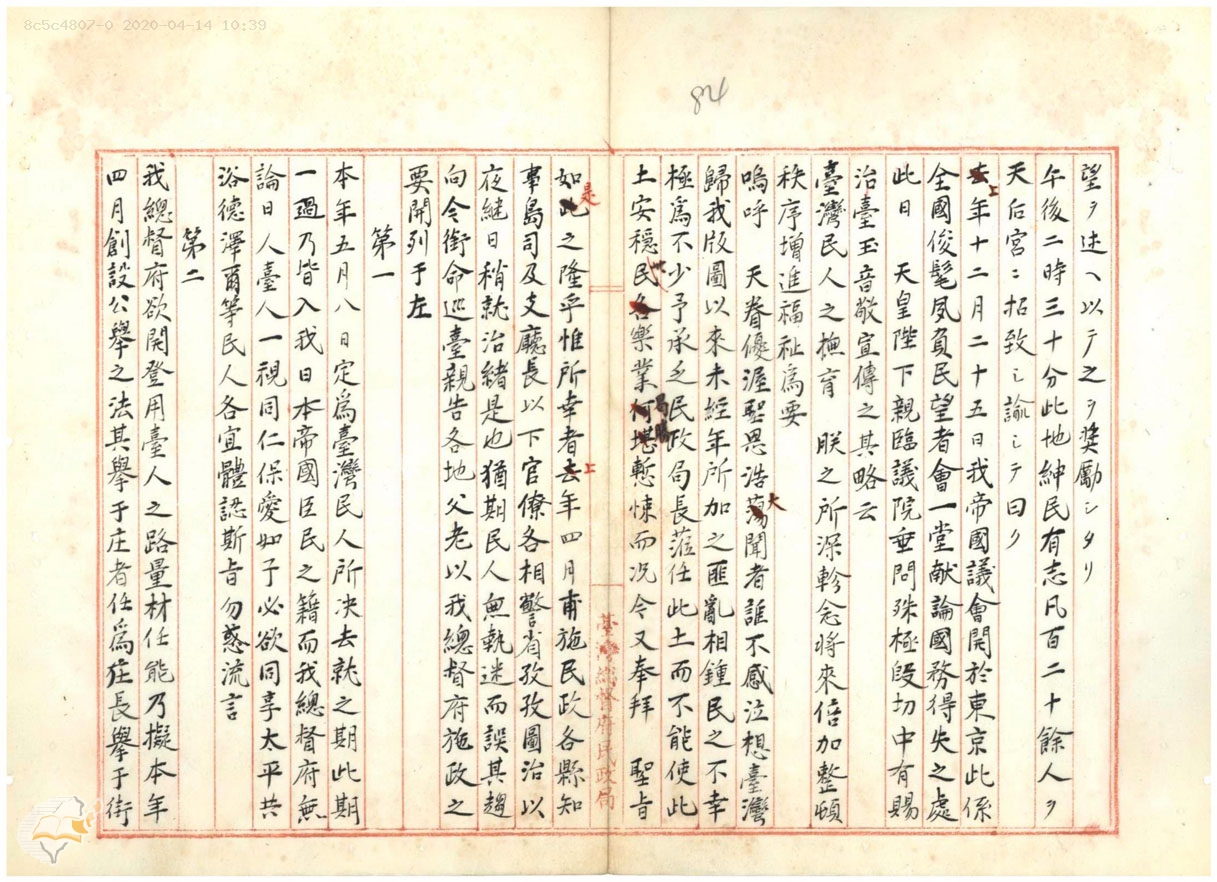 8c5c4807-0 2020-04-14 10:39
84
望ヲ述ヘ以テ之ヲ奨勵シタリ
午後二時三十分此地紳民有志凡百二十餘人ヲ
天后宮ニ招致シ諭シテ曰ク
去上年十二月二十五日我帝國議會開於東京此係
全國俊髦夙負民望者會一堂献論國務得失之處
此日　天皇陛下親臨議院垂問殊極段切中有賜
治臺玉音敬宣傳之其略云
臺灣民人之撫育　朕之所深軫念將來倍加整頓
秩序增進福祉爲要
嗚呼　天眷優渥聖恩浩蕩大聞者誰不感泣想臺灣
歸我版圖以來未經年所加之匪亂相鍾民之不幸
極爲不少予承乏民政局長蒞任此土而不能使此
土安穩民各樂業何堪曷勝慙悚而况今又奉拜　聖旨
臺灣總督府民政局
如此是之隆乎惟所幸者去上年四月甫施民政各縣知
事島司及支廳長以下官僚各相警省孜孜圖治以
夜継日稍就治緒是也猶期民人無執迷而誤其趨
向今銜命巡臺親告各地父老以我總督府施政之
要開列于左
第一
本年五月八日定爲臺灣民人所决去就之期此期
一過乃皆入我日本帝國臣民之籍而我總督府無
論日人臺人一視同仁保愛如子必欲同享太平共
浴德澤爾等民人各宜體認斯旨勿惑流言
第二
我總督府欲開登用臺人之路量材任能乃擬本年
四月創設公舉之法其舉于庄者任爲庄長舉于街